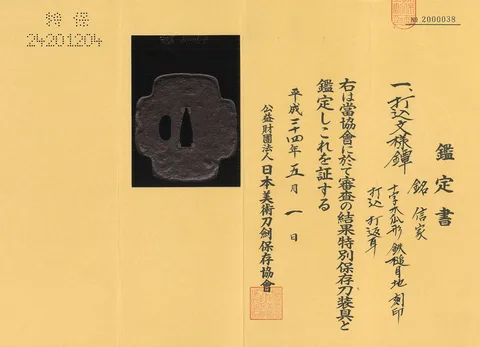 特保
24201204
№ 2000038
鑑定書
一、打込文様鐔
銘 信家
十字木瓜形 鉄槌目地 刻印
打込 打返耳
右は當協會に於て審査の結果特別保存刀装具と
鑑定しこれを証する
平成二十四年五月一日
公益財團法人 日本美術刀剣保存協會